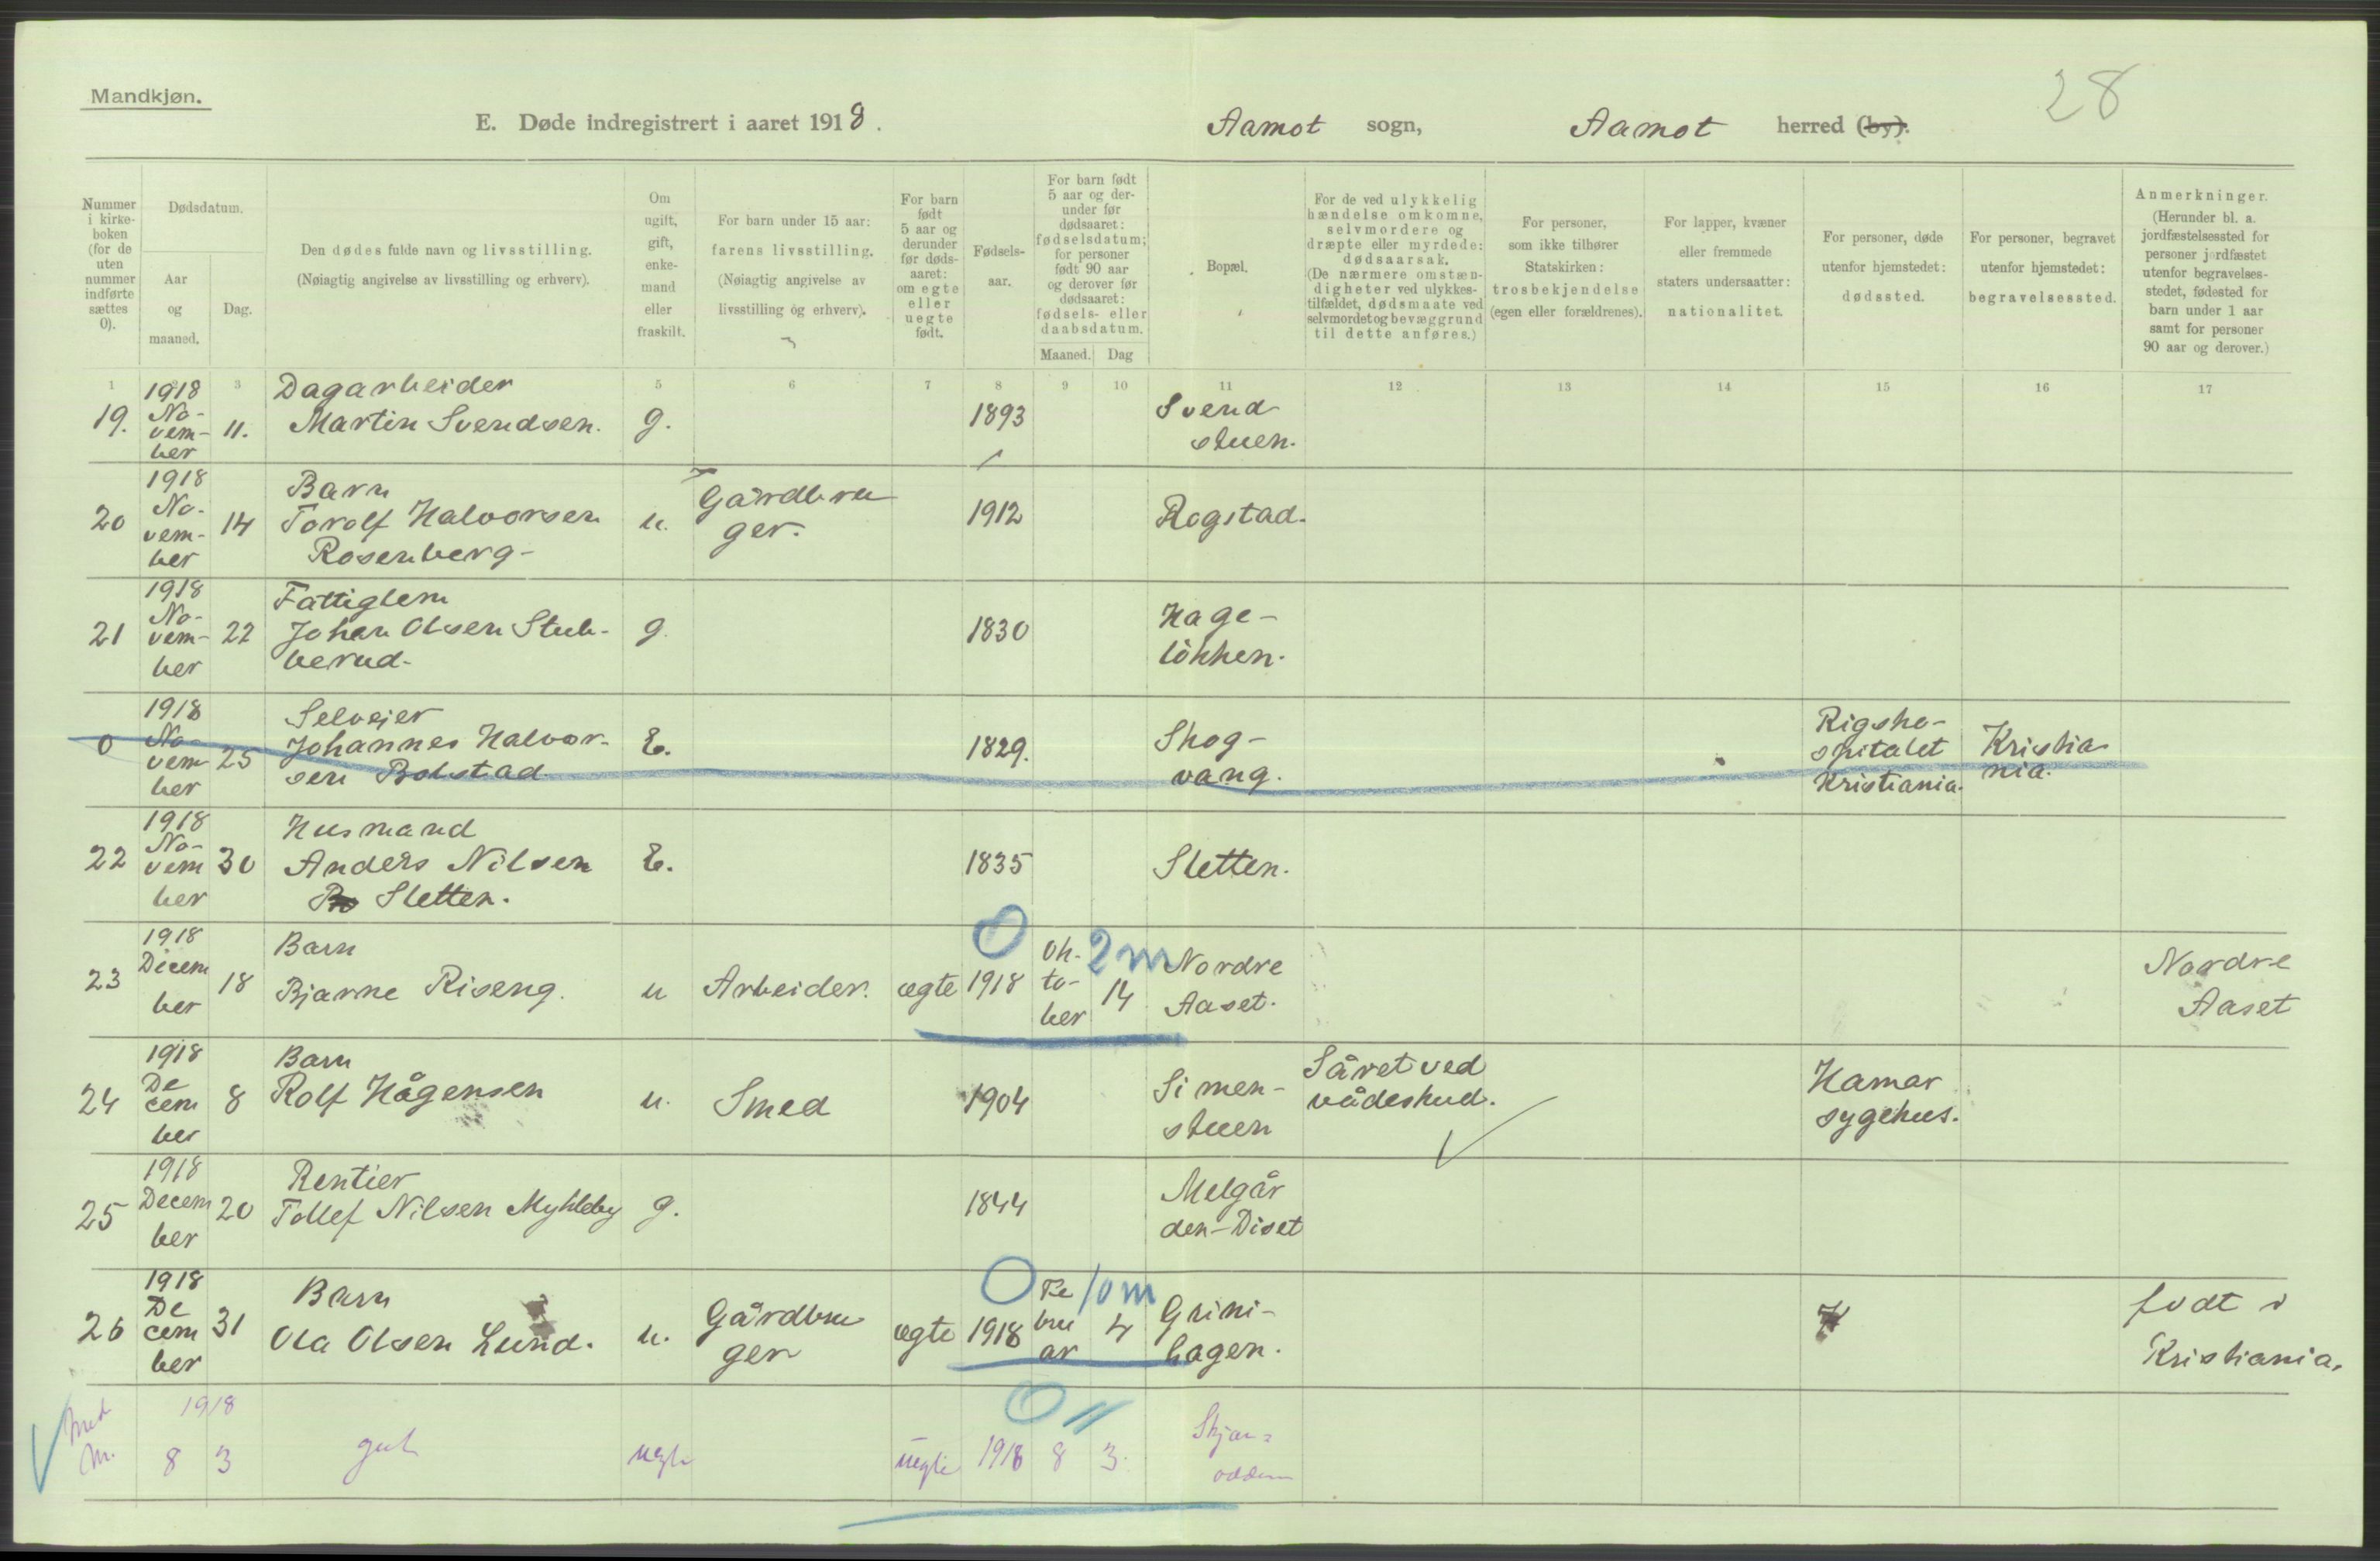 Mandkjøn.
28
E. Døde indregistrert i aaret 1918.
Aamot sogn, Aamot herred (by).
Nummer i kirke- boken (for de uten nummer indførte sættes 0).
Dødsdatum.
Aar og maaned.
Dag.
Den dødes fulde navn og livsstilling.
(Nøiagtig angivelse av livsstilling og erhverv).
Om ugift, gift, enke- mand eller fraskilt.
For barn under 15 aar: farens livsstilling. (Nøiagtig angivelse av livsstilling og erhverv).
For barn født 5 aar og derunder før døds- aaret: om egte eller uegte født.
Fødsels- aar.
For barn født 5 aar og der- under før dødsaaret: fødselsdatum; for personer født 90 aar og derover før dødsaaret: fødsels- eller daabsdatum.
Maaned. Dag
Bopæl.
For de ved ulykkelig hændelse omkomne, selvmordere og dræpte eller myrdede: dødsaarsak. (De nærmere omstæn- digheter ved ulykkes- tilfældet, dødsmaate ved selvmord og bevæggrund til dette anføres.)
For personer, som ikke tilhører Statskirken: trosbekjendelse (egen eller forældrenes).
For lapper, kvæner eller fremmede staters undersaatter: nationalitet.
For personer, døde utenfor hjemstedet: dødssted.
For personer, begravet utenfor hjemstedet: begravelsessted.
Anmerkninger. (Herunder bl. a. jordfæstelsessted for personer jordfæstet utenfor begravelses- stedet, fødested for barn under 1 aar samt for personer 90 aar og derover.)
1 3 5 6 7 8 9 10 11 12 13 14 15 16 17
19. 1918 No- vem- ber 11. Dagarbeider Martin Svendsen. g. 1893 Svend stuen.
20 1918 No- vem- ber 14 Barn Torolf Halvorsen Rosenberg- u. Gårdbru ger. 1912 Rogstad.
21 1918 No- vem- ber 22 Fattiglem Johan Olsen Stub- berud. g. 1830 Hage- løkken.
0 1918 No- vem ber 25 Selveier Johannes Halvor- sen Bolstad E. 1829. Skog- vang. Rigsho- spitalet Kristiania. Kristia nia.
22 1918 No- vem ber 30 Husmand Anders Nilsen Sletten. E. 1835 Sletten.
23 1918 Decem ber 18 Barn Bjarne Riseng. u Arbeider. ægte 0 1918 Ok- to- ber 2m 14 Nordre Aaset. Nordre Aaset
24 1918 De cem ber 8 Barn Rolf Hågensen u. Smed 1904 Simen- stuen Såret ved vådeskud. Hamar sygehus.
25 1918 Decem ber 20 Rentier Tollef Nilsen Myhleby g. 1844 Melgår den-Diset
26 1918 De cem ber 31 Barn Ola Olsen Lund. u. Gårdbru ger ægte 0 1918 Fe bru ar 10m 4 Grini- hagen. født i Kristiania.
m. 1918 8 3 gut uegte 0 1918 8 3. odden